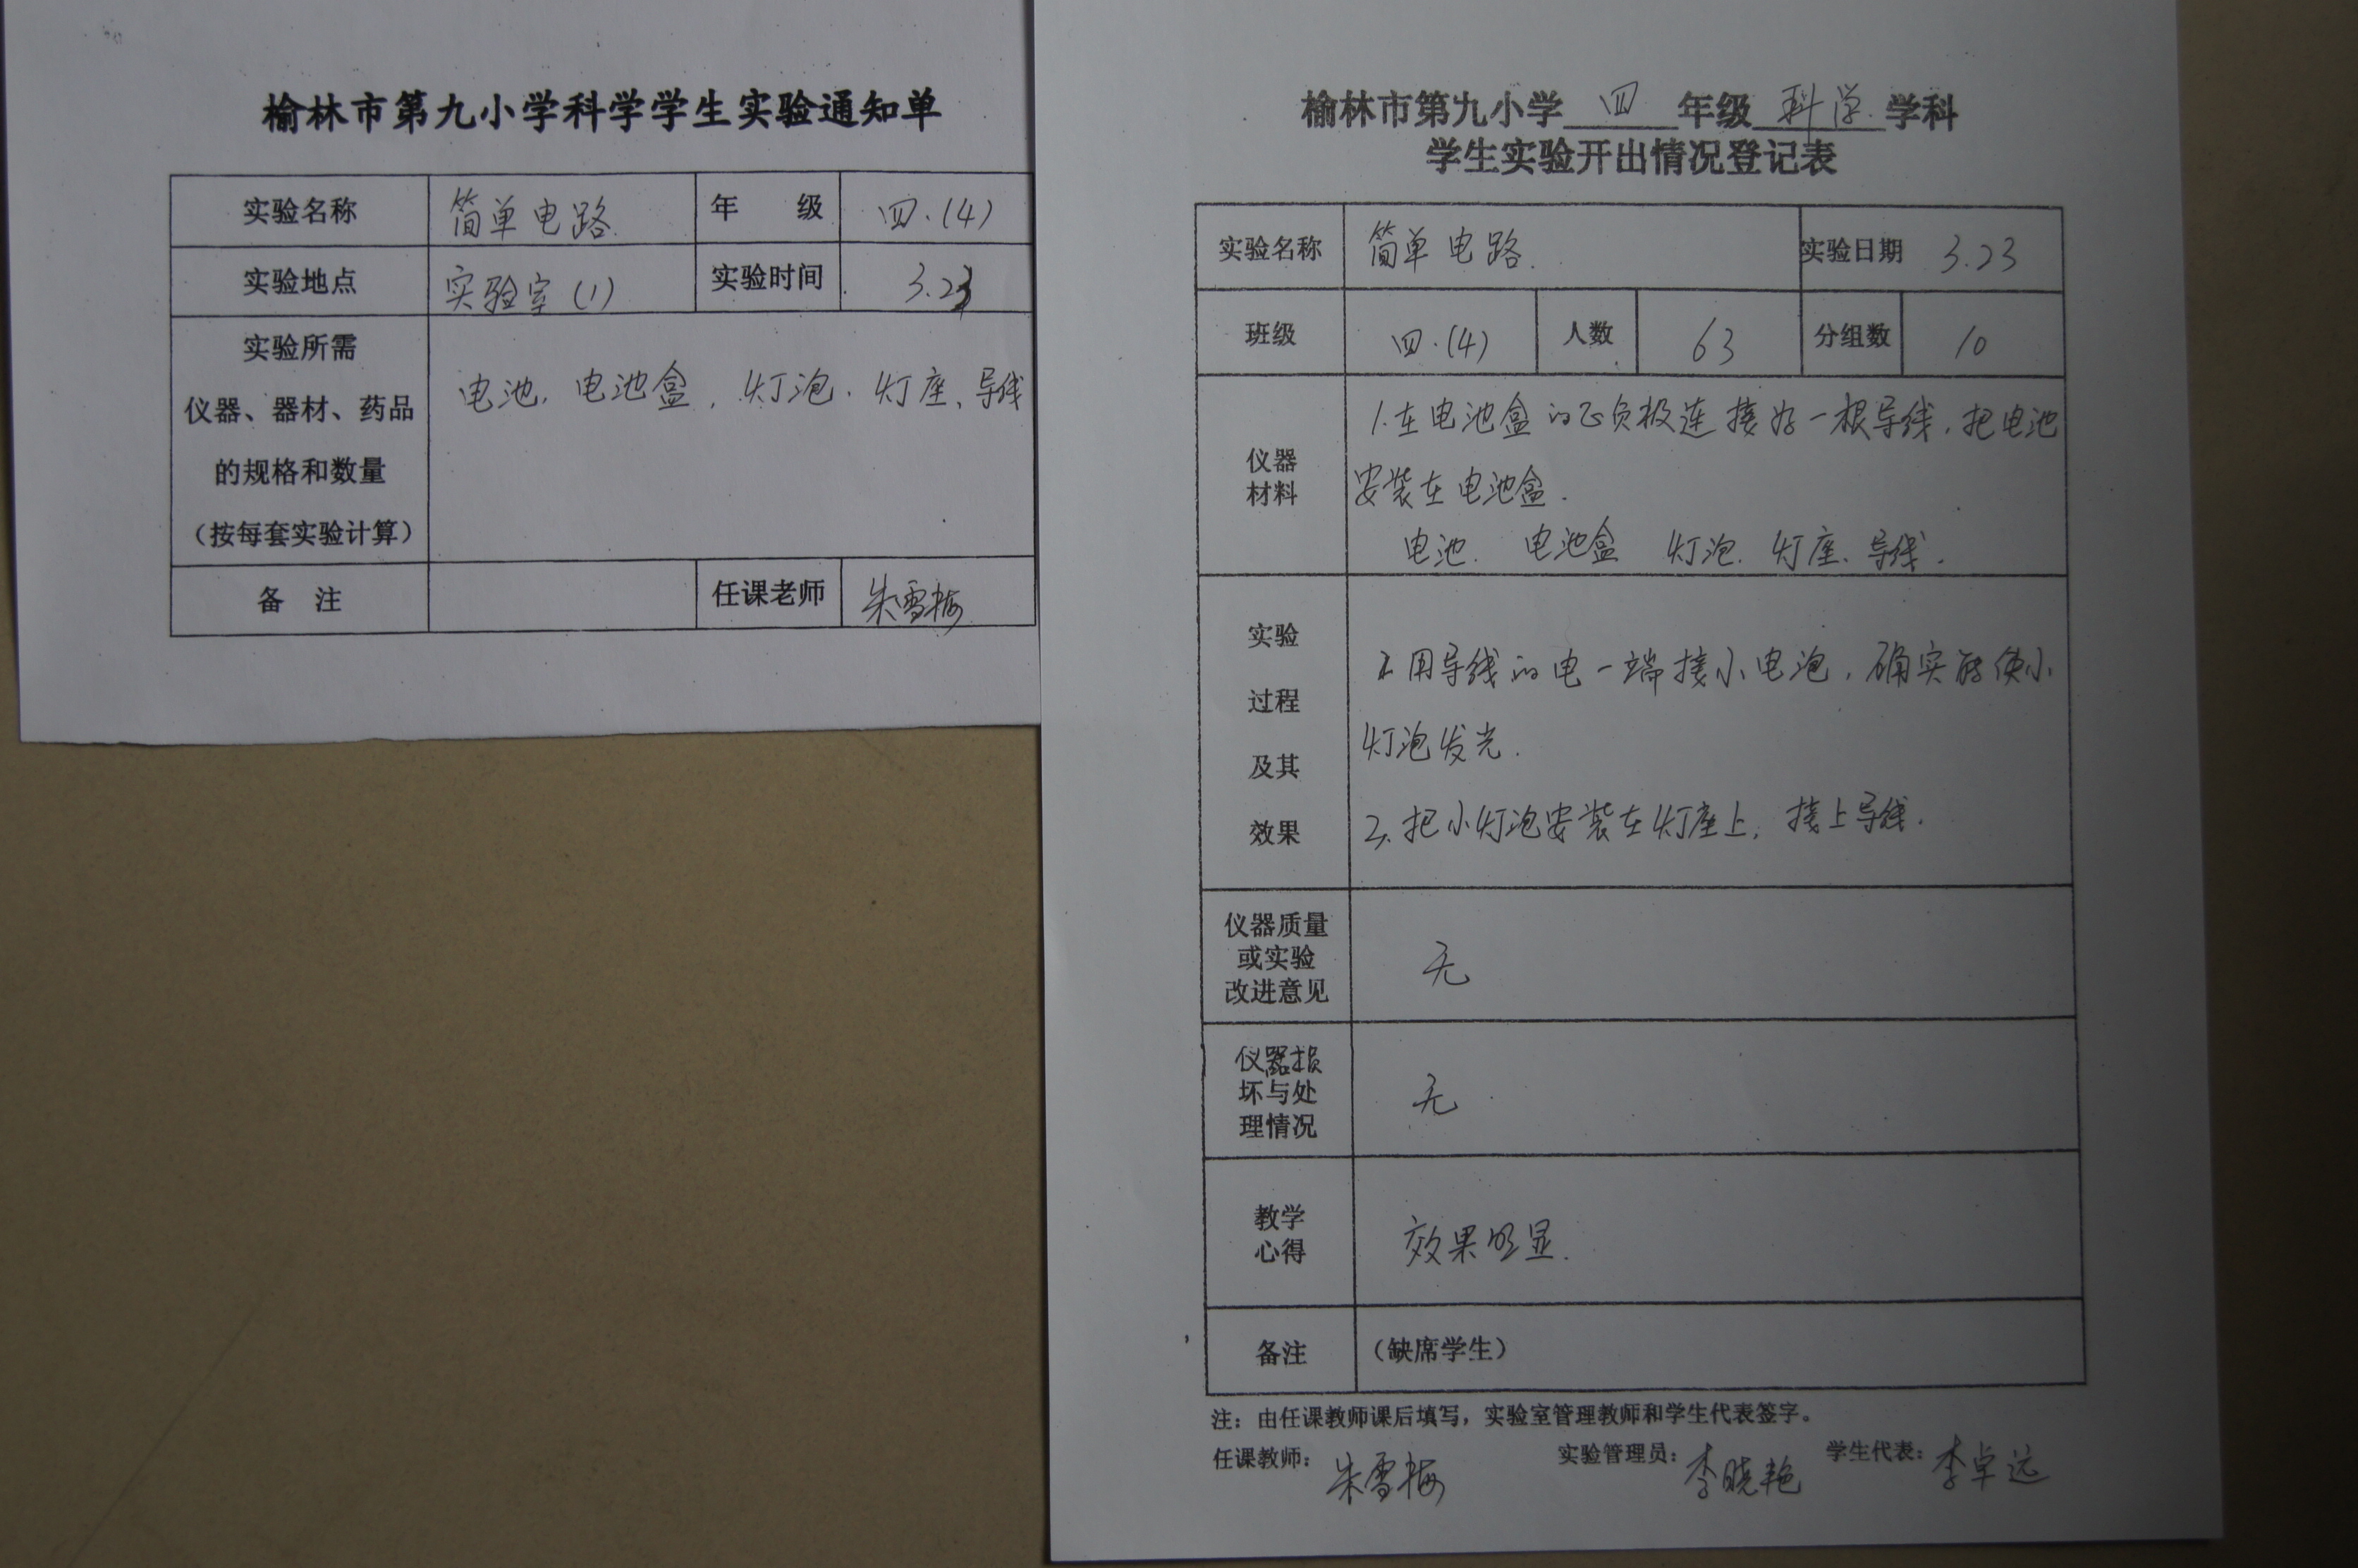 榆林市第九小学科学学生实验通知单
实验名称 简单电路 年 级 四.(4)
实验地点 实验室(1) 实验时间 3.23
实验所需
仪器、器材、药品
的规格和数量
(按每套实验计算)
电池、电池盒、灯泡、灯座、导线
备 注 任课老师 朱雪梅
榆林市第九小学 四 年级 科学 学科
学生实验开出情况登记表
实验名称 简单电路. 实验日期 3.23
班级 四.(4) 人数 63 分组数 10
仪器
材料
1.在电池盒的正负极连接好一根导线,把电池
安装在电池盒.
电池. 电池盒 灯泡. 灯座、导线.
实验
过程
及其
效果
2.用导线的电一端接小电泡,确实能使小
灯泡发光.
3.把小灯泡安装在灯座上,接上导线.
仪器质量
或实验
改进意见
无
仪器损
坏与处
理情况
无
教学
心得
效果明显.
备注 (缺席学生)
注:由任课教师课后填写,实验室管理教师和学生代表签字。
任课教师: 朱雪梅 实验管理员: 李晓艳 学生代表: 李卓远